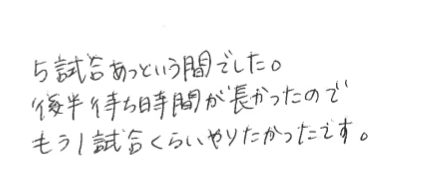 5試合あっという間でした。
後半待ち時間が長かったので
もう1試合くらいやりたかったです。